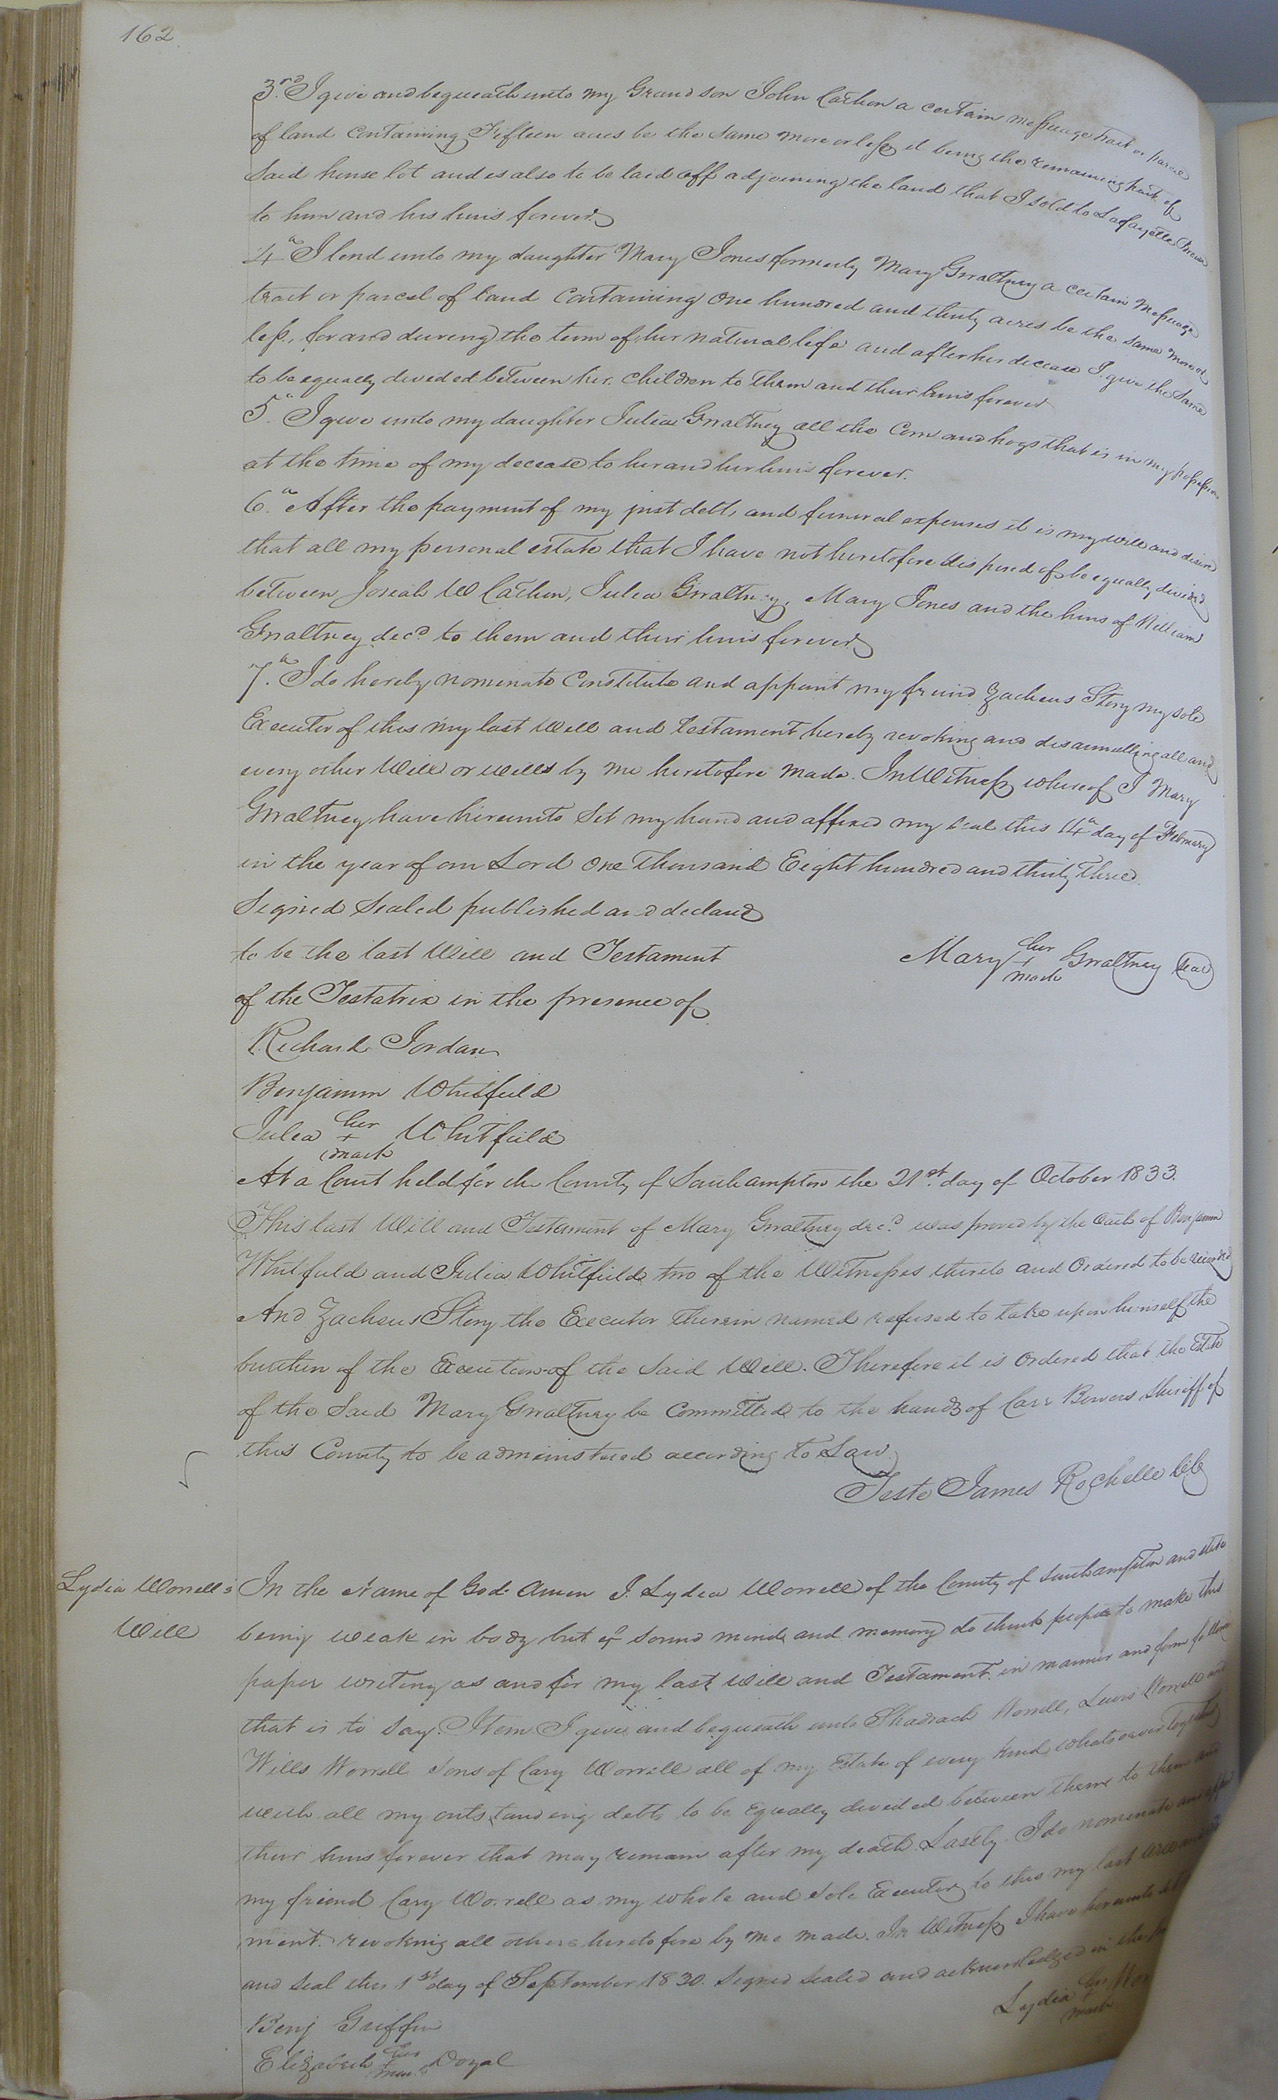 162
3rd. I give and bequeath unto my Grandson John Cathon a certain messuage tract or parcel
of land containing Fifteen acres be the same more or less it being the remaining part of
Said house lot and is also to be laid off adjoining the land that I sold to Lafayette
to him and his heirs forever
4th I lend unto my daughter Mary Jones formerly Mary Gwaltney a certain messuage
tract or parcel of land containing one hundred and thirty acres be the same more or
less, for and during the term of her natural life and after her decease I give the same
to be equally divided between her children to them and their heirs forever
5th. I give unto my daughter Julia Gwaltney all the Corn and hogs that is in my possession
at the time of my decease to her and her heirs forever.
6th. After the payment of my just debts and funeral expenses it is my will and desire
that all my personal estate that I have not heretofore disposed of be equally divided
between Josiah W Cathon, Julia Gwaltney, Mary Jones and the heirs of William
Gwaltney decd to them and their heirs forever
7th. I do hereby nominate Constitute and appoint my friend Zacheus Story my sole
Executor of this my last Will and testament hereby revoking and disannulling all and
every other Will or wills by me heretofore made. In Witness whereof I Mary
Gwaltney have hereunto Set my hand and affixed my seal this 14th day of February
in the year of our Lord one thousand Eight hundred and thirty three
Signed Sealed published and declared
to be the last Will and Testament
Mary her + mark Gwaltney seal
of the Testatrix in the presence of
Richard Jordan
Benjamin Whitfield
Julia her + mark Whitfield
At a Court held for the County of Southampton the 21st. day of October 1833.
This last Will and Testament of Mary Gwaltney decd. was proved by the oath of Benjamin
Whitfield and Julia Whitfield two of the Witnesses thereto and Ordered to be recorded
And Zacheus Story the Executor therein named refused to take upon himself the
burthen of the Execution of the said Will. Therefore it is Ordered that the Estate
of the Said Mary Gwaltney be Committed to the hands of Carr Bowers Sheriff of
this County to be administered according to Law.
Teste James Rochelle Clk
Lydia Worrell's
Will
In the Name of God Amen I Lydia Worrell of the County of Southampton and state
being weak in body but of sound mind and memory do think proper to make this
paper writing as and for my last Will and Testament in manner and form following
that is to say. Item I give and bequeath unto Shadrach Worrell, Lewis Worrell and
Wills Worrell Sons of Cary Worrell all of my Estate of every kind whatsoever together
with all my outstanding debts to be Equally divided between them to them and
their heirs forever that may remain after my death Lastly I do nominate and
my friend Cary Worrell as my whole and sole Executor to this my last Will and
ment. revoking all others heretofore by me made. In Witness I have hereunto set
and seal this 1st day of September 1830. Signed sealed and acknowledged in the
Lydia her + mark
Benj Griffin
Elizabeth her + mark Doyal